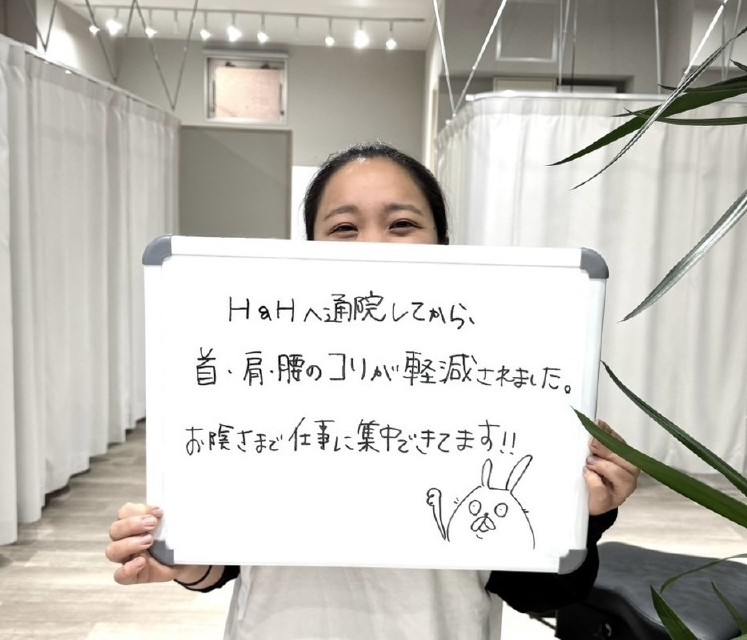 H&Hへ通院してから、
首・肩・腰のコリが軽減されました。
お陰さまで仕事に集中できてます!!